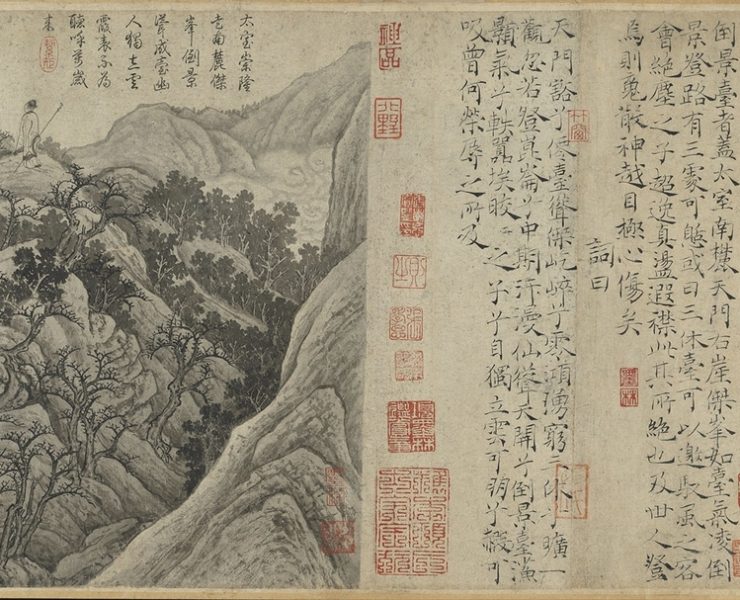 倒景臺者蓋太室南麓天門右崖傑峯如臺氣凌倒
景登路有三處可憩或曰三休臺可以邀馭風之客
會絕塵之子超逸真盪遐襟此其所絕也及世人登
焉則魂散神越目極心傷矣
詞曰
天門豁兮僊臺聳傑屹崒兮雲澒湧窮三休兮曠一
觀忽若登崑崙兮中期汗漫仙聳天開兮倒景臺
顥氣兮軼囂埃皎〻之子兮自獨立雲可朋兮霞可
吸曾何榮辱之所及
神品
太室崇隆
南麓傑
峯倒景
聳成臺幽
人獨立雲
霞表不為
聽呼萬歲
來